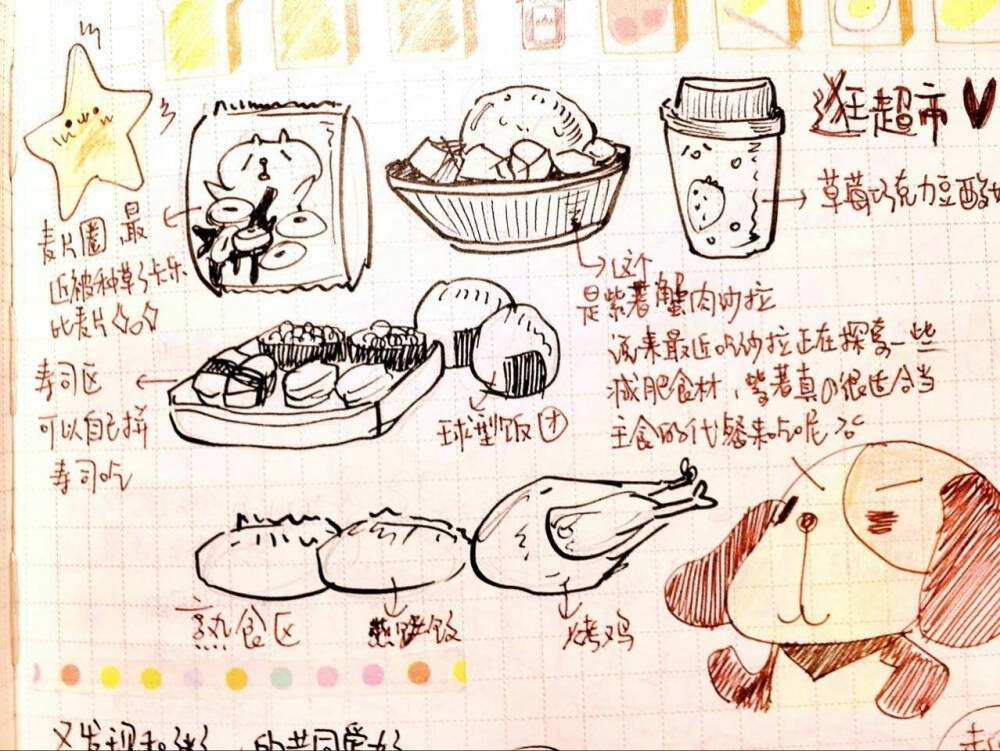 逛超市
草莓巧克力豆酸
麦片圈 最
近被种草了卡乐
比麦片
这个
是紫薯蟹肉沙拉
说来最近吃沙拉正在探索一些
减肥食材，紫薯真的很适合当
主食的代餐来吃呢
寿司区
可以自己拼
寿司吃
球型饭团
熟食区
煎饺
烤鸡
又发现和
的共同爱好